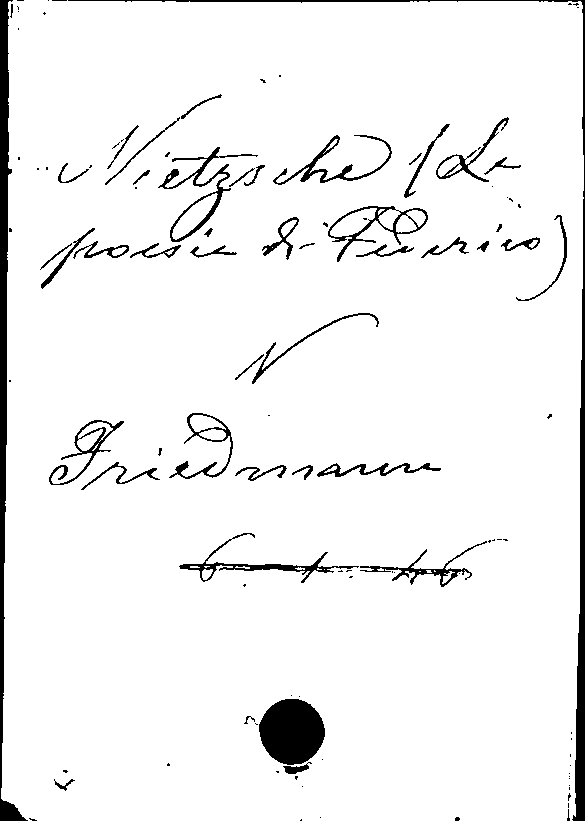 Nietzsche (Le
poesie di Federico)
V
Friedmann
6. 1. 46